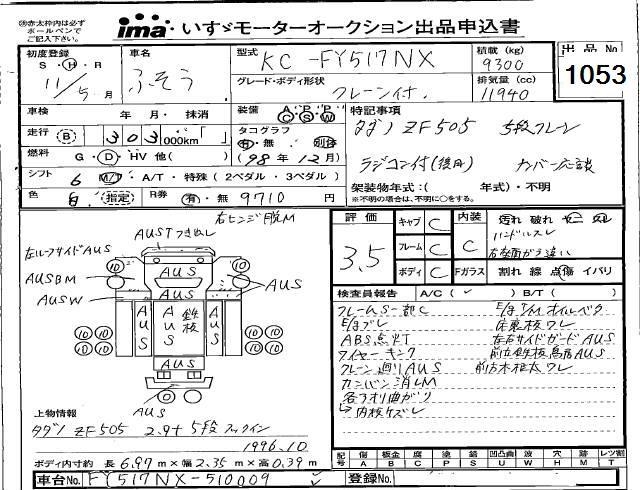 ㊟赤太枠内は必ず
ボールペンで
ご記入下さい。
ima いすゞモーターオークション出品申込書
初度登録 車名 型式 KC-FY517NX 積載 (kg) 9300 出品No
S・H・R 11/5月 ふそう グレード・ボディ形状 クレーン付. 排気量 (cc) 11940 1053
車検 年 月・抹消 装備 A/C P/S P/W 特記事項
走行 B 303,000km「 」 タコグラフ 有・無 別体 タダノ ZF505 5段クレーン
燃料 G・D・HV 他( ) (98年12月) ラジコン付(後用) ナンバー応談
シフト 6 M/T・A/T・特殊 (2ペダル・3ペダル) 架装物年式:( 年式)・不明
色 白 指定 R券 有・無 9710円 ※不明の場合は、不明に○をする。
右ヒンジ脱M
AUST つきぬし
左ルーフサイドAUS
AUSBM AUS AUS
AUSW
AUS AUS 鉄板 AUS
AUS
AUS
⑩ ⑩ ⑩ ⑩ ⑩ ⑩ ⑩ ⑩ ⑩ ⑩
評価 3.5 キャブ C 内装 C 汚れ 破れ ヤニ スレ
フレーム C ハンドルスレ
右座面がら違い
ボディ C Fガラス 割れ 線 点傷 イバリ
検査員報告 A/C( ✓ ) B/T( )
フレームS一部C E/g T/M オイルベタ
E/gブレ 床東板ワレ
ABS点灯 左右サイドガードAUS
ワイヤーキンク 前立鉄板鳥居AUS
クレーン廻りAUS 前方木柱太ワレ
カンバン消しM
各アオリ曲がり
→内枝ケズレ
上物情報
タダノ ZF505 2.9t 5段フックイン
1996.10
ボディ内寸約 長 6.97m×幅 2.35m×高 0.39m
記号 傷 A 板金 B 腐 C 補 P 塗 S 錆 凹凸曲 U 波 W 穴 H 跡 M レンズ割 T
車台No. FY517NX-510009 登録No.